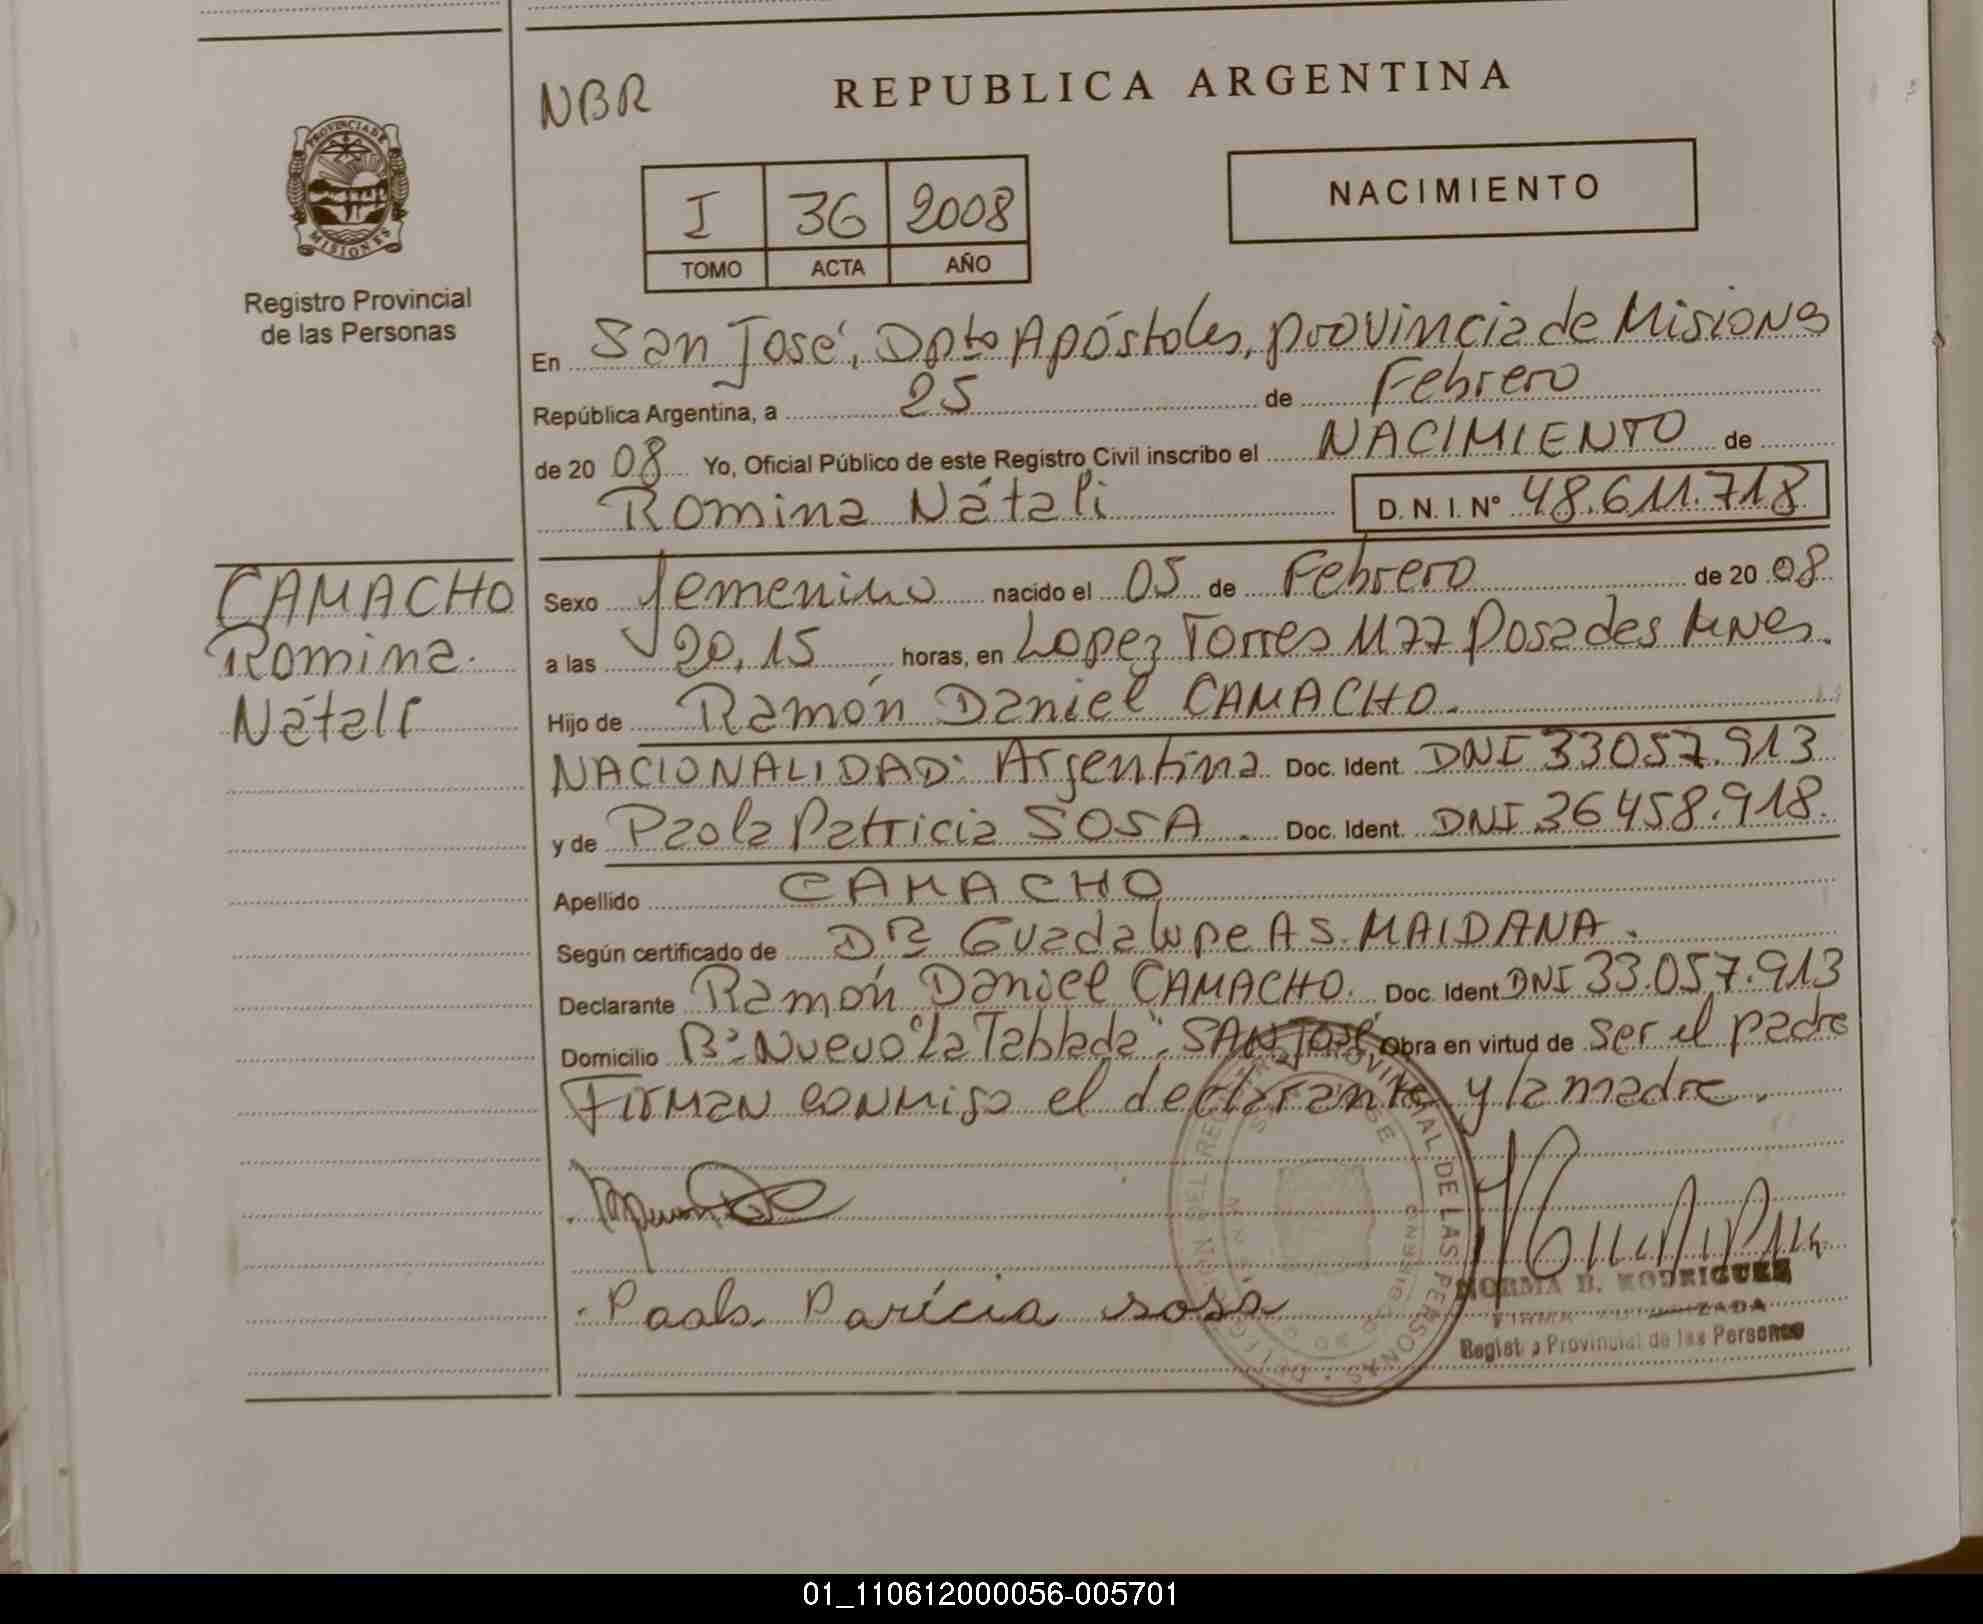 NBR
REPUBLICA ARGENTINA
PROVINCIA DE MISIONES
Registro Provincial
de las Personas
I 36 2008
TOMO ACTA AÑO
NACIMIENTO
En San José, Dpto Apóstoles, provincia de Misiones
República Argentina, a 25 de Febrero
de 20 08 Yo, Oficial Público de este Registro Civil inscribo el NACIMIENTO de
Romina Nátali D. N. I. Nº 48.611.718
CAMACHO
Romina
Nátali
Sexo femenino nacido el 05 de Febrero de 20 08
a las 20,15 horas, en Lopez Torres 1177 Posadas Mnes.
Hijo de Ramón Daniel CAMACHO.
NACIONALIDAD: Argentina Doc. Ident. DNI 33057.913
y de Paola Patricia SOSA. Doc. Ident. DNI 36458.918.
Apellido CAMACHO
Según certificado de Dra Guadalupe A S. MAIDANA.
Declarante Ramón Daniel CAMACHO. Doc. Ident DNI 33.057.913
Domicilio Bº Nuevo "La Tablada". SAN José, Obra en virtud de ser el padre
Firman conmigo el declarante y la madre.
Paola Parícia sosa
NORMA B. RODRIGUEZ
FIRMA AUTORIZADA
Registro Provincial de las Personas
01_110612000056-005701